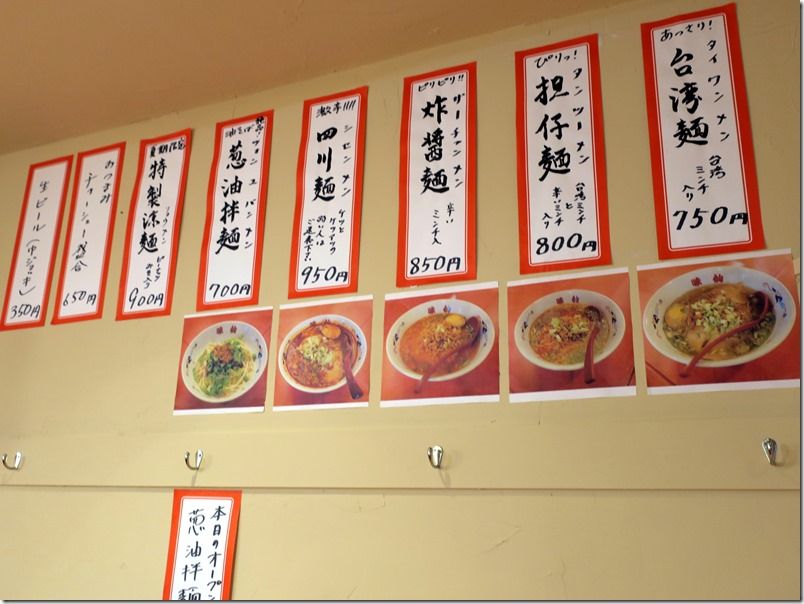 あっさり!
台湾麺
タイワンメン
台湾
ミンチ
入り
750円
ぴりっ!
担仔麺
タンツーメン
台湾ミンチ
と
辛いミンチ
入り
800円
ピリピリ!!
炸醤麺
ザーチャンメン
辛い
ミンチ入
850円
激辛!!!!
四川麺
シセンメン
950円
油そば
葱油拌麺
ツァンユバンメン
700円
夏期限定
特製涼麺
900円
おつまみ
チャーシュー盛合
650円
生ビール(中ジョッキ)
350円
本日のオープン
葱油拌麺
味軒